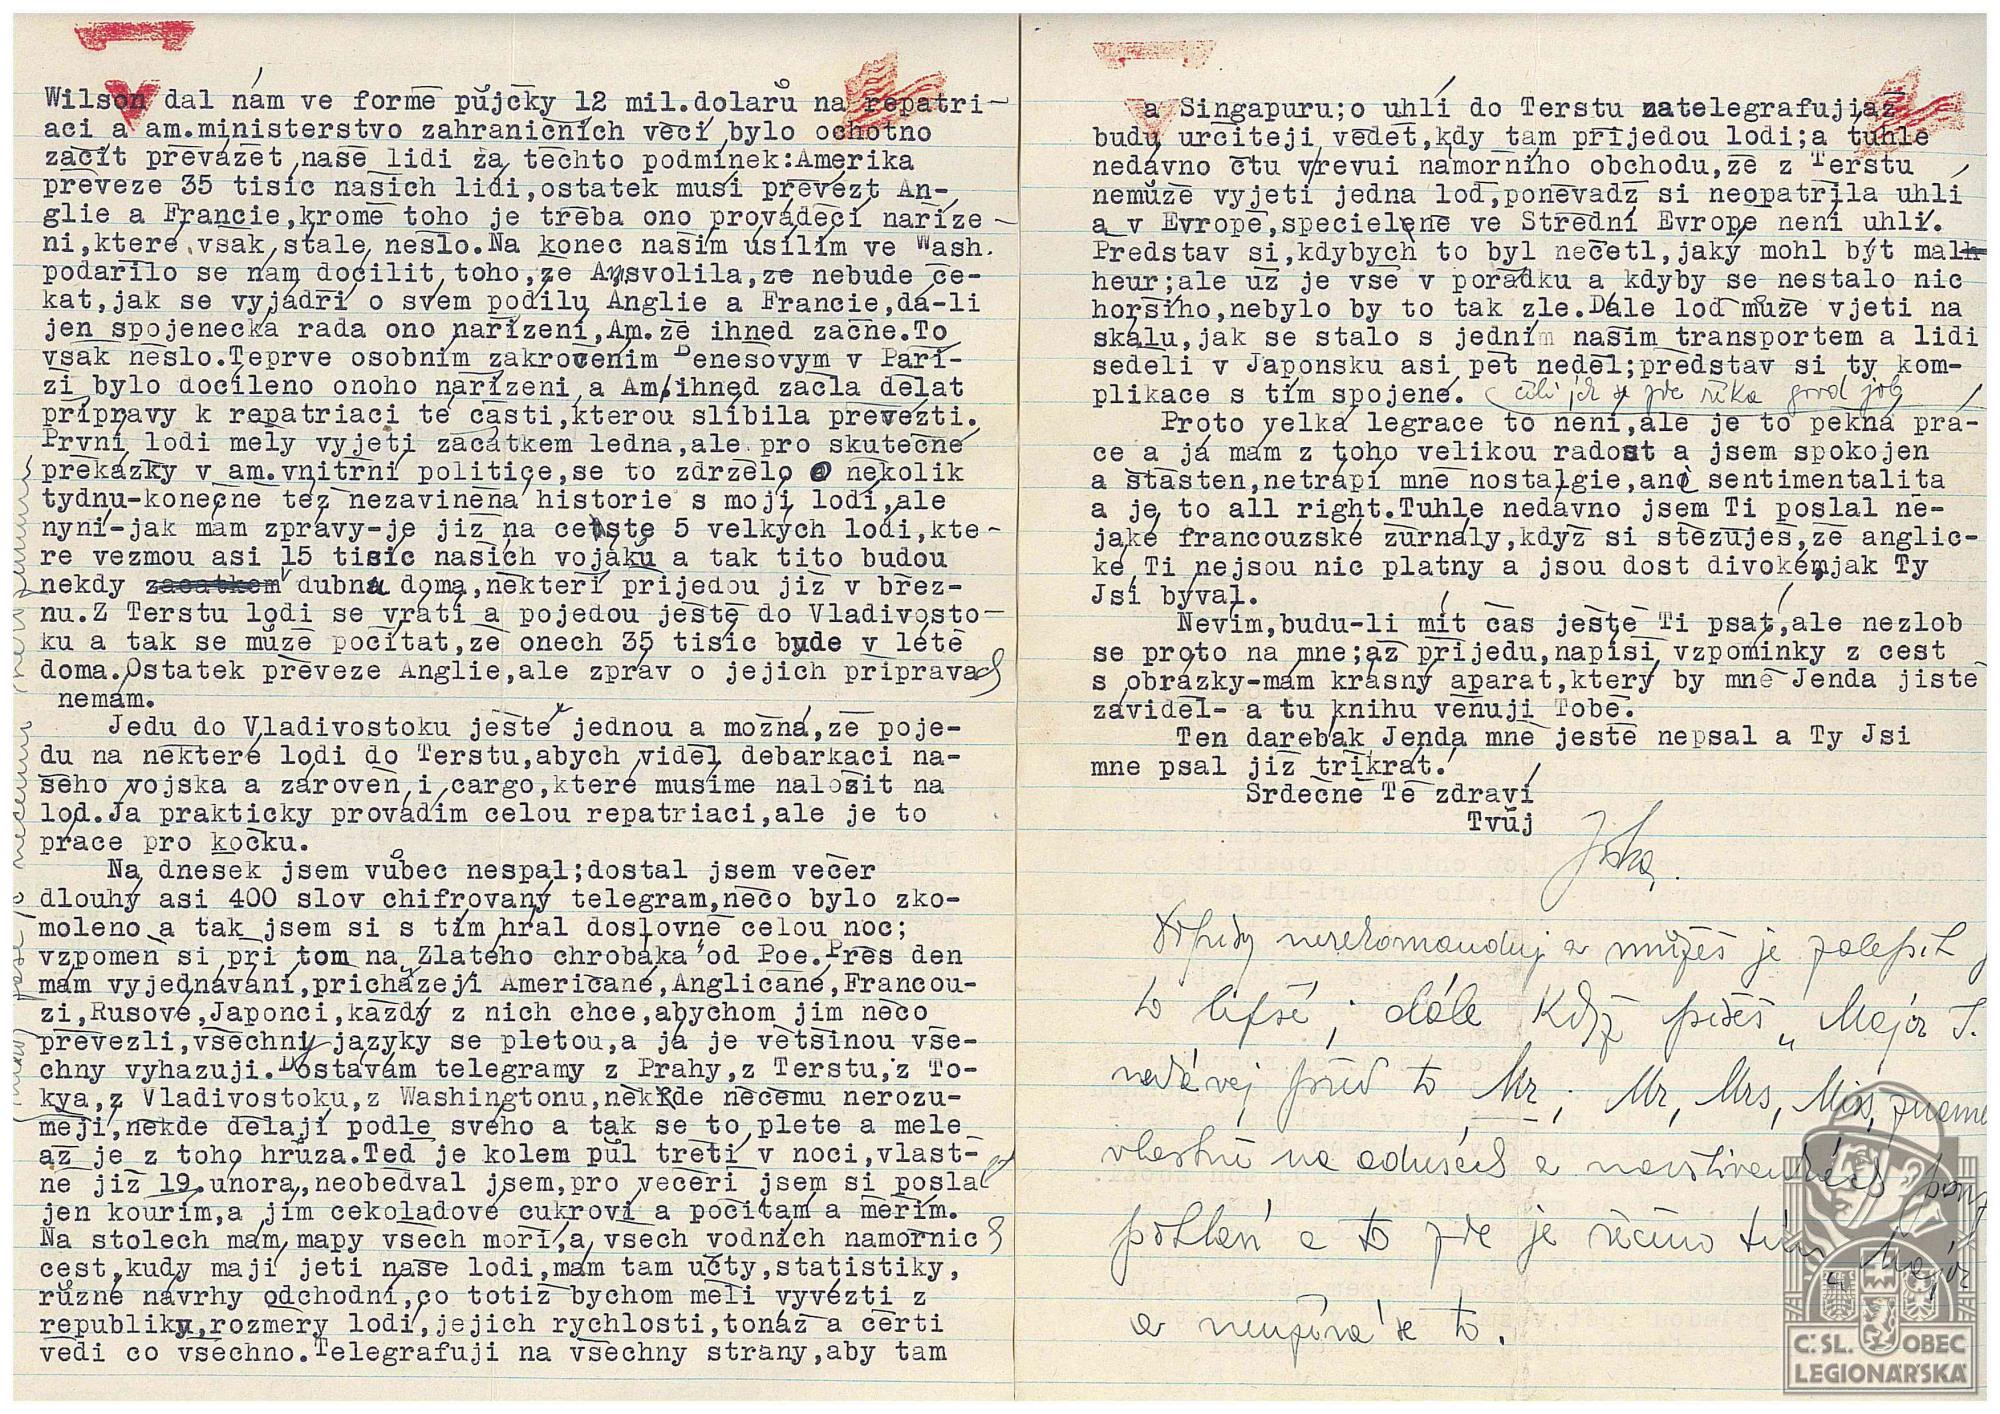 Wilson dal nám ve formě půjčky 12 mil.dolarů na repatri-
aci a am.ministerstvo zahraničních věcí bylo ochotno
začít převážet naše lidi za těchto podmínek:Amerika
převeze 35 tisíc našich lidí,ostatek musí převézt An-
glie a Francie,kromě toho je třeba ono prováděcí naříze-
ní,které však stále nešlo.Na konec naším úsílím ve Wash.
podařilo se nám docílit toho,že Am.svolila,že nebude če-
kat,jak se vyjádří o svém podílu Anglie a Francie,dá-li
jen spojenecká rada ono nařízení,Am.že ihned začne.To
však nešlo.Teprve osobním zakročením Benešovým v Paří-
ži bylo docíleno onoho nařízení a Am.ihned začla dělat
přípravy k repatriaci té části,kterou slíbila převézti.
První lodi měly vyjeti začátkem ledna,ale pro skutečné
překážky v am.vnitřní politice,se to zdrželo o několik
týdnu-konečně též nezaviněná historie s mojí lodí,ale
nyní-jak mám zprávy-je již na cestě 5 velkých lodí,kte-
ré vezmou asi 15 tisíc našich vojáků a tak tito budou
někdy začátkem dubna doma,někteří přijedou již v břez-
nu.Z Terstu lodi se vrátí a pojedou ještě do Vladivosto-
ku a tak se může počítat,že oněch 35 tisíc bude v létě
doma.Ostatek převeze Anglie,ale zpráv o jejich přípravách
nemám.
Jedu do Vladivostoku ještě jednou a možná,že poje-
du na některé lodi do Terstu,abych viděl debarkaci na-
šeho vojska a zároveň i cargo,které musíme naložit na
loď.Já prakticky provádím celou repatriaci,ale je to
práce pro kočku.
Na dnesek jsem vůbec nespal;dostal jsem večer
dlouhý asi 400 slov chifrovaný telegram,něco bylo zko-
moleno a tak jsem si s tím hrál doslovně celou noc;
vzpomeň si při tom na „Zlatého chrobáka" od Poe.Přes den
mám vyjednávání,přicházejí Američané,Angličané,Francou-
zi,Rusové,Japonci,každý z nich chce,abychom jim něco
převezli,všechny jazyky se pletou,a já je většinou vše-
chny vyhazuji.Dostávám telegramy z Prahy,z Terstu,z To-
kya,z Vladivostoku,z Washingtonu,někde něčemu nerozu-
mějí,někde dělají podle svého a tak se to plete a mele
až je z toho hrůza.Teď je kolem půl třetí v noci,vlast-
ně již 19.února,neobědval jsem,pro večeři jsem si poslal
jen kouřím,a jím čekoladové cukroví a počítám a měřím.
Na stolech mám mapy všech moří,a všech vodních námořních
cest,kudy mají jeti naše lodi,mám tam účty,statistiky,
různé návrhy odchodní,co totiž bychom měli vyvézti z
republiky,rozměry lodí,jejich rychlosti,tonáž a čerti
vědí co všechno.Telegrafuji na všechny strany,aby tam
a Singapuru;o uhlí do Terstu zatelegrafuji,až
budu určitěji vědět,kdy tam přijedou lodi;a tuhle
nedávno čtu v revui námořního obchodu,že z Terstu
nemůže vyjeti jedna loď,poněvadž si neopatřila uhlí
a v Evropě,specielně ve Střední Evropě není uhlí.
Představ si,kdybych to byl nečetl,jaký mohl být mal-
heur;ale už je vše v pořádku a kdyby se nestalo nic
horšího,nebylo by to tak zlé.Dále loď může vjeti na
skálu,jak se stalo s jedním naším transportem a lidi
seděli v Japonsku asi pět neděl;představ si ty kom-
plikace s tím spojené. (čili jak se zde říká good job
Proto velká legrace to není,ale je to pěkná prá-
ce a já mám z toho velikou radost a jsem spokojen
a šťasten,netrápí mně nostalgie,ani sentimentalita
a je to all right.Tuhle nedávno jsem Ti poslal ně-
jaké francouzské žurnály,když si stěžuješ,že anglic-
ké Ti nejsou nic platny a jsou dost divoké,jak Ty
Jsi býval.
Nevím,budu-li mít čas ještě Ti psát,ale nezlob
se proto na mne;až přijedu,napíši vzpomínky z cest
s obrázky-mám krásný aparát,který by mně Jenda jistě
záviděl- a tu knihu věnuji Tobě.
Ten darebák Jenda mně ještě nepsal a Ty Jsi
mne psal již třikrát.
Srdečně Tě zdraví
Tvůj
Jirka.
Dopisy nerekomanduj a můžeš je zalepit j
to lepší; dále když píšeš „Major J.
nedávej před to Mr; Mr, Mrs, Miss, zname
vlastně na adresách a navštívenkách pouz
pohlaví a to zde je řečeno tím „Major
a neužívá se to.
Č.SL. OBEC
LEGIONÁŘSKÁ